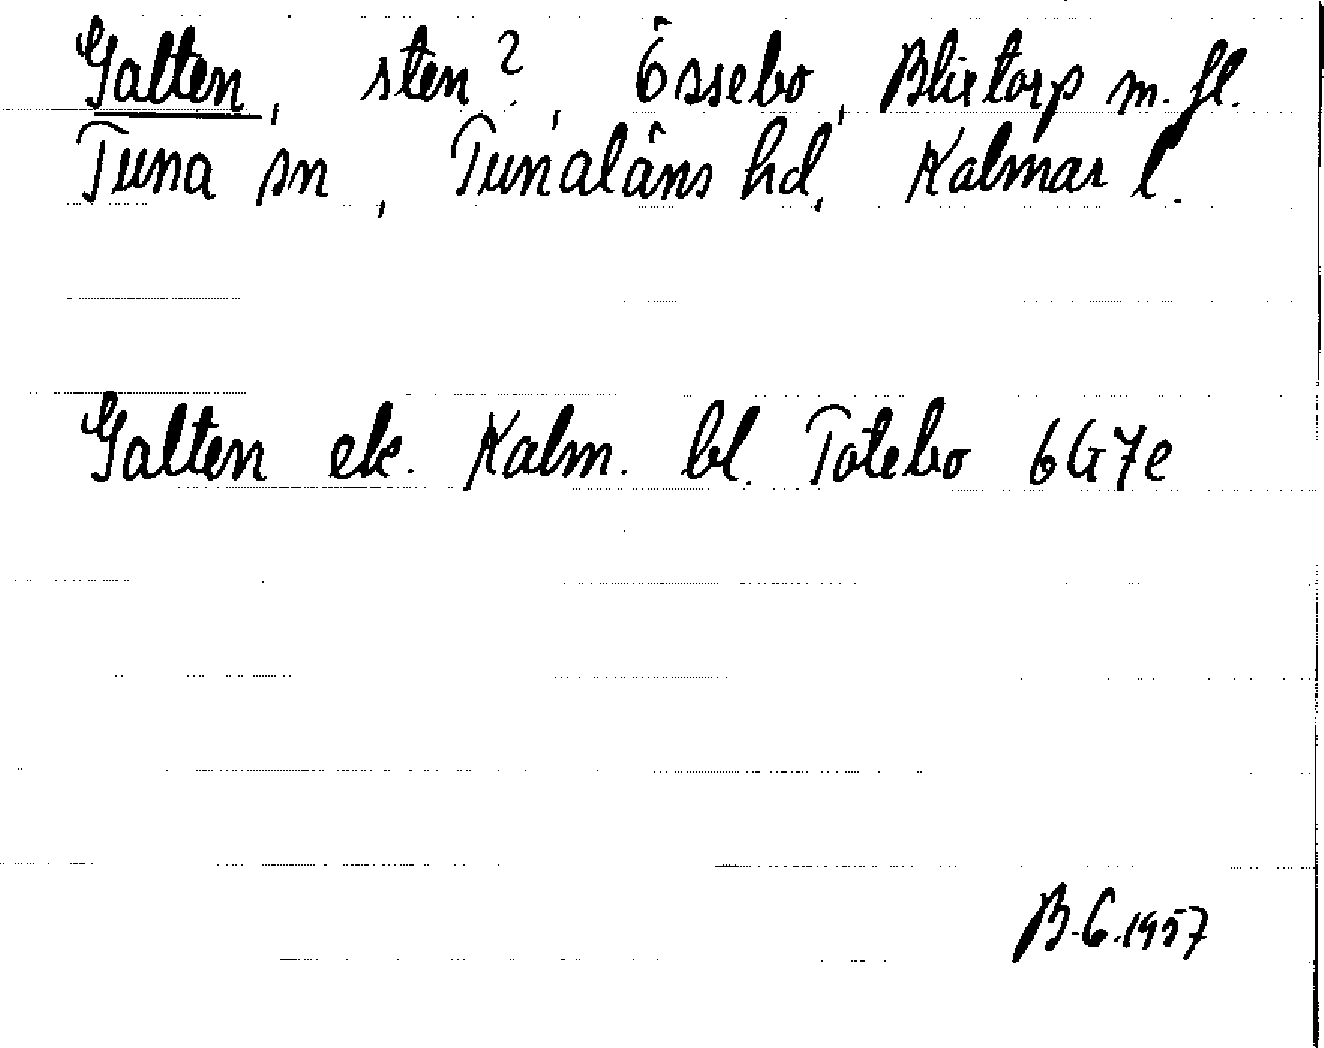 Galten, sten?, Össebo, Blixtorp m. fl.
Tuna sn, Tunaläns hd, Kalmar l.
Galten ek. Kalm. bl. Totebo 6G7e
B.G.1957